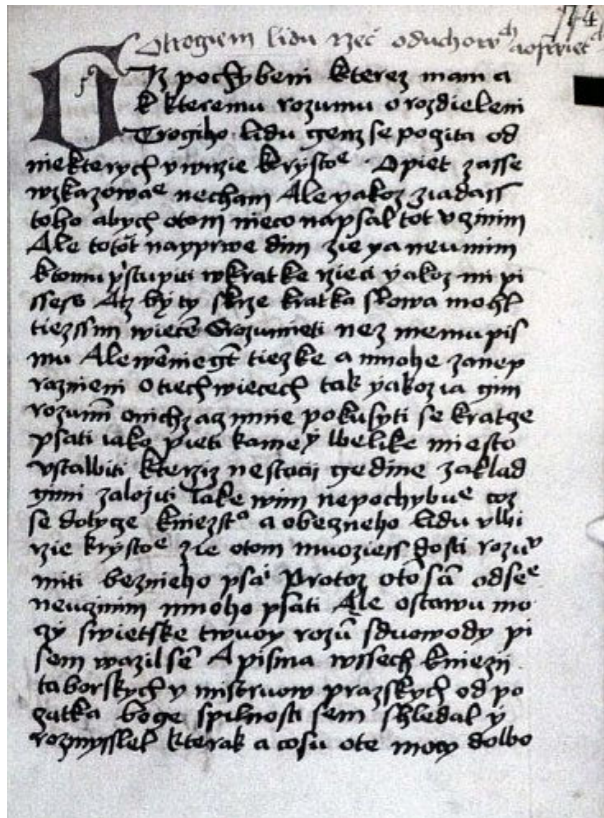 174
O trogiem lidu rzeč o duchow a o swiet
Iz pochybeni kterez mam a
k kteremu rozumu o rozdieleni
Trogiho lidu genz se pozita od
niekterych v wirzie krysto Opiet zasse
wzkazowa necham Ale yakoz ziadass
toho abych otom nieco napsal tot vczinim
Ale totot nayprwe dim zie ya neumim
ktomu pstupiti wkratke rzieci yakoz mi pi
ssess Az by ty skrze kratka slowa mohl
tiezssim wiecem srozumieti nez memu pis
mu Ale tiezke a mnohe zanep
raznieni o tiech wiecech tak yakoz ia gim
rozumim mnie pokusyti se kratge
psati iako pieti kamey welike miesto
vstawiti kterziz nestaci gedine zaklad
gimi zaloziti Take wim nepochybue coz
se dotyge kniezst a obegneho lidu v wi
rzie krysto zie otom muoziess dosti rozu
miti bezmeho psa Protoz oto sa odse
neuczinim mnoho psati Ale ostawu mo
czy swietske twuoy rozu sduowody pi
sem wazil sem A pisma wssech kniezii
taborskych y mistruow prazskych od po
czatka boge spilnosti sem shledal y
rozmysslel kterak a co su ote moczy dolbo